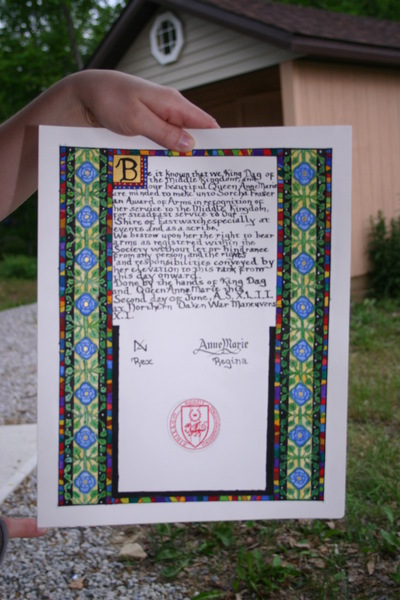 Be it known that we, King Dag of
the Middle Kingdom, and
our beautiful Queen AnneMarie
are minded to make unto Sorcha Fraser
an Award of Arms in recognition of
her service to the Middle Kingdom,
for steadfast service to Our
Shire of Eastwatch especially at
events and as a scribe.
We bestow upon her the right to bear
arms as registered within the
Society without let or hindrance
from any person, and the rights
and responsibilities conveyed by
her elevation to this rank from
this day onward.
Done by the hands of King Dag
and Queen AnneMarie this
Second day of June, A.S. XLII
at Northern Oaken War Maneuvers
XI.
AnneMarie
Rex
Regina